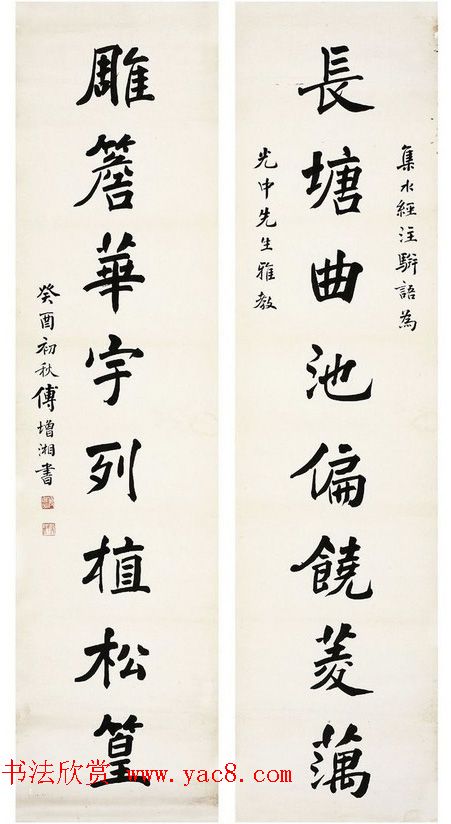 集水經注駢語為
長塘曲池偏饒菱蕅
光中先生雅教
雕簷華宇列植松篁
癸酉初秋傅增湘書
书法欣赏 www.yac8.com